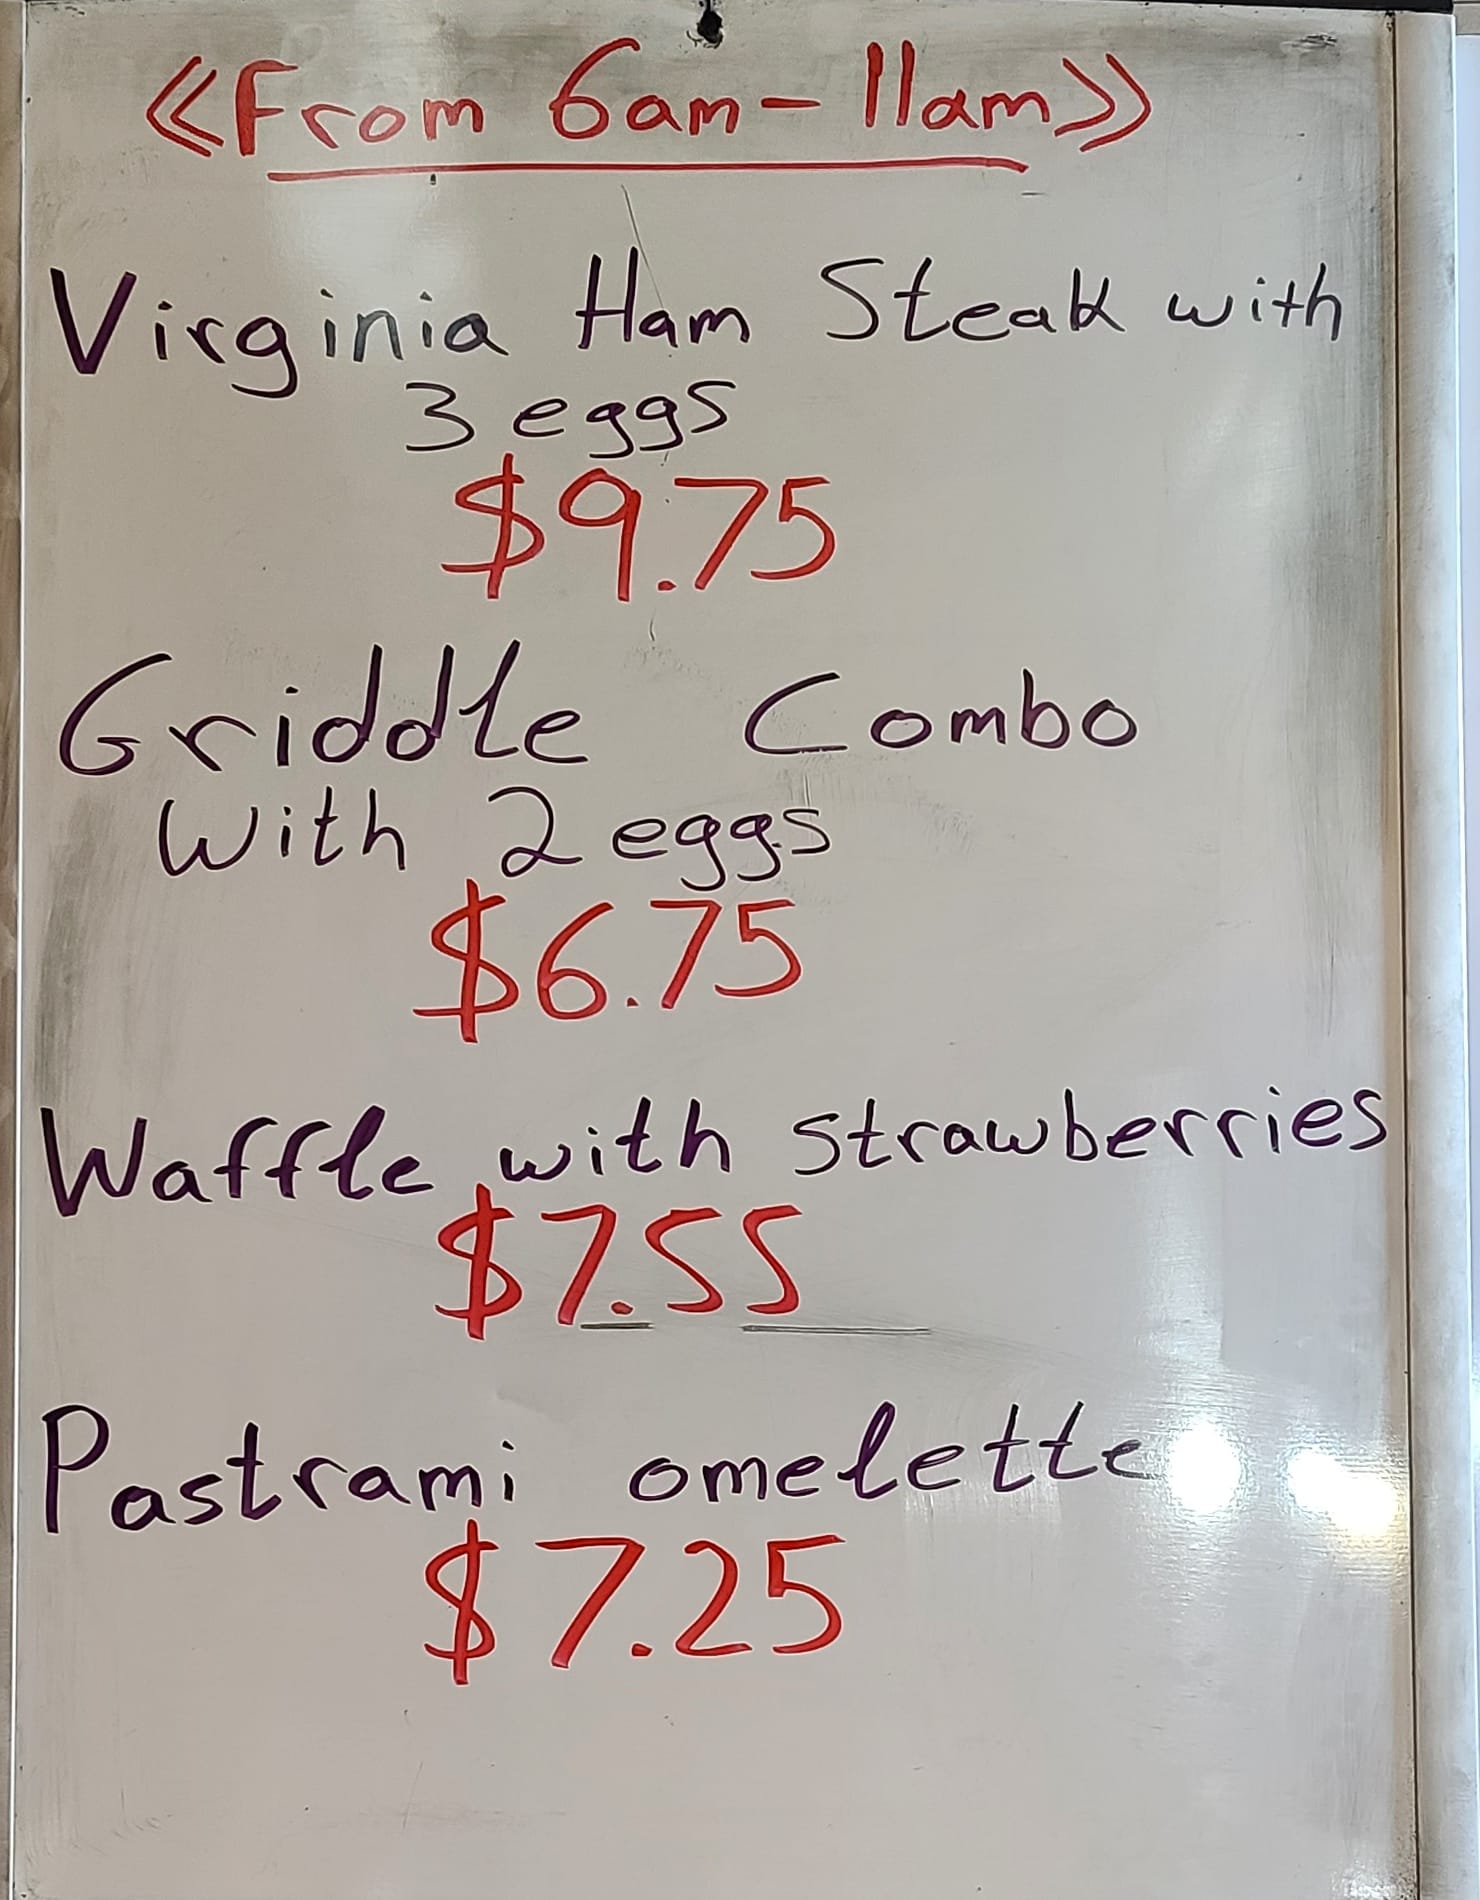 《From 6am-11am》
Virginia Ham Steak with
3 eggs
$9.75
Griddle Combo
With 2 eggs
$6.75
Waffle with strawberries
$7.55
Pastrami omelette
$7.25